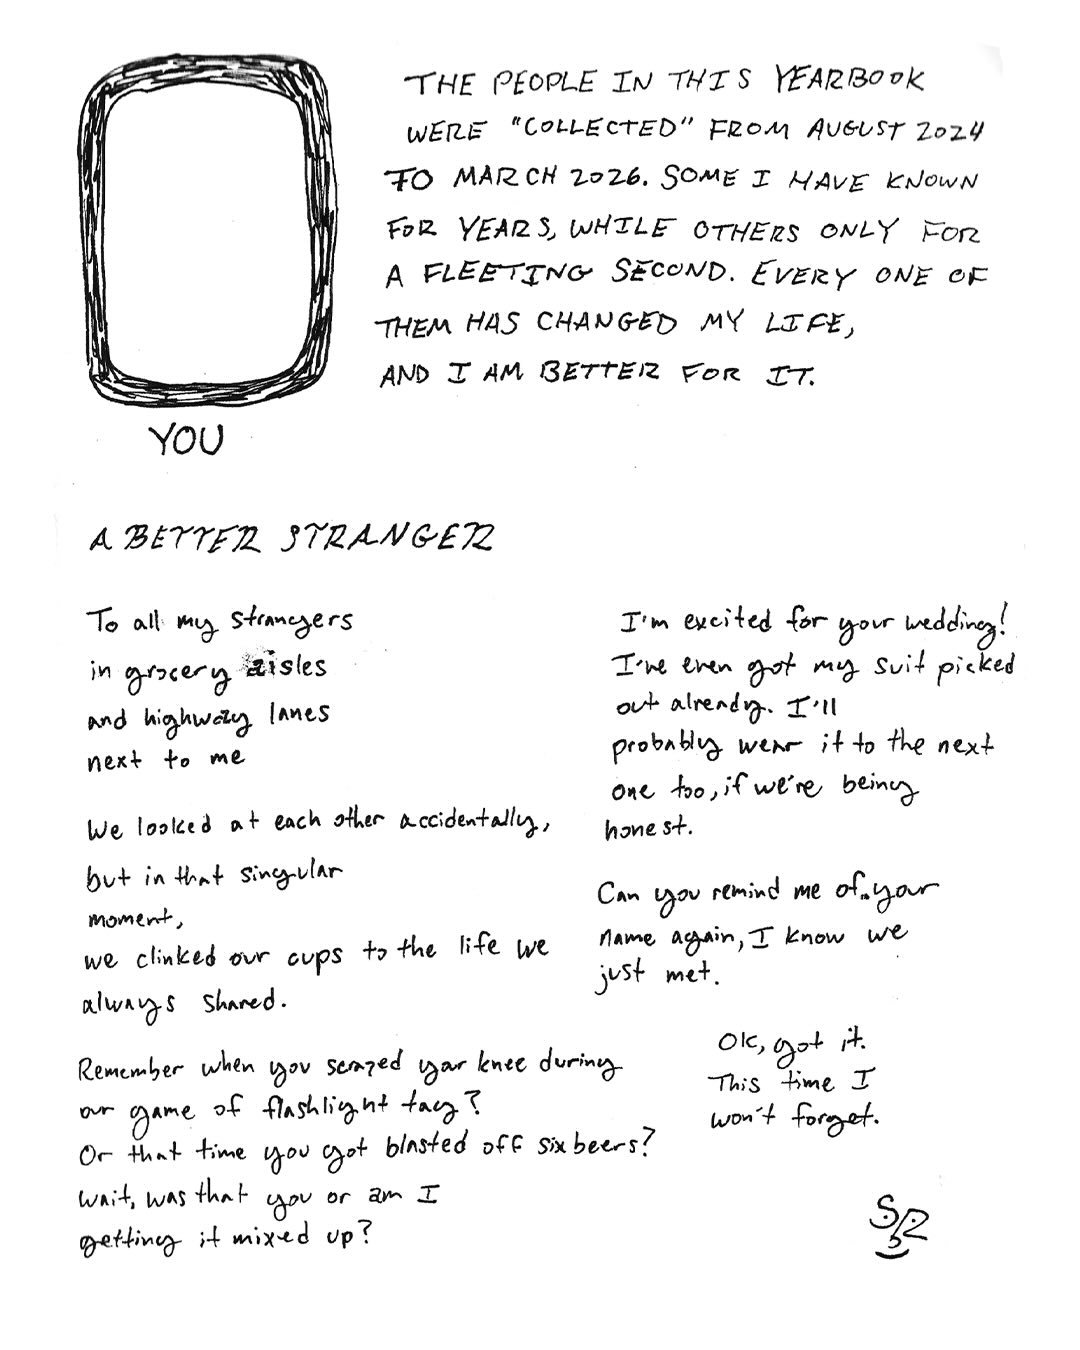 THE PEOPLE IN THIS YEARBOOK
WERE "COLLECTED" FROM AUGUST 2024
TO MARCH 2026. SOME I HAVE KNOWN
FOR YEARS, WHILE OTHERS ONLY FOR
A FLEETING SECOND. EVERY ONE OF
THEM HAS CHANGED MY LIFE,
AND I AM BETTER FOR IT.
YOU
A BETTER STRANGER
To all my strangers
in grocery aisles
and highway lanes
next to me
We looked at each other accidentally,
but in that singular
moment,
we clinked our cups to the life we
always shared.
Remember when you scraped your knee during
our game of flashlight tag?
Or that time you got blasted off six beers?
Wait, was that you or am I
getting it mixed up?
I'm excited for your wedding!
I've even got my suit picked
out already. I'll
probably wear it to the next
one too, if we're being
honest.
Can you remind me of your
name again, I know we
just met.
Ok, got it.
This time I
won't forget.